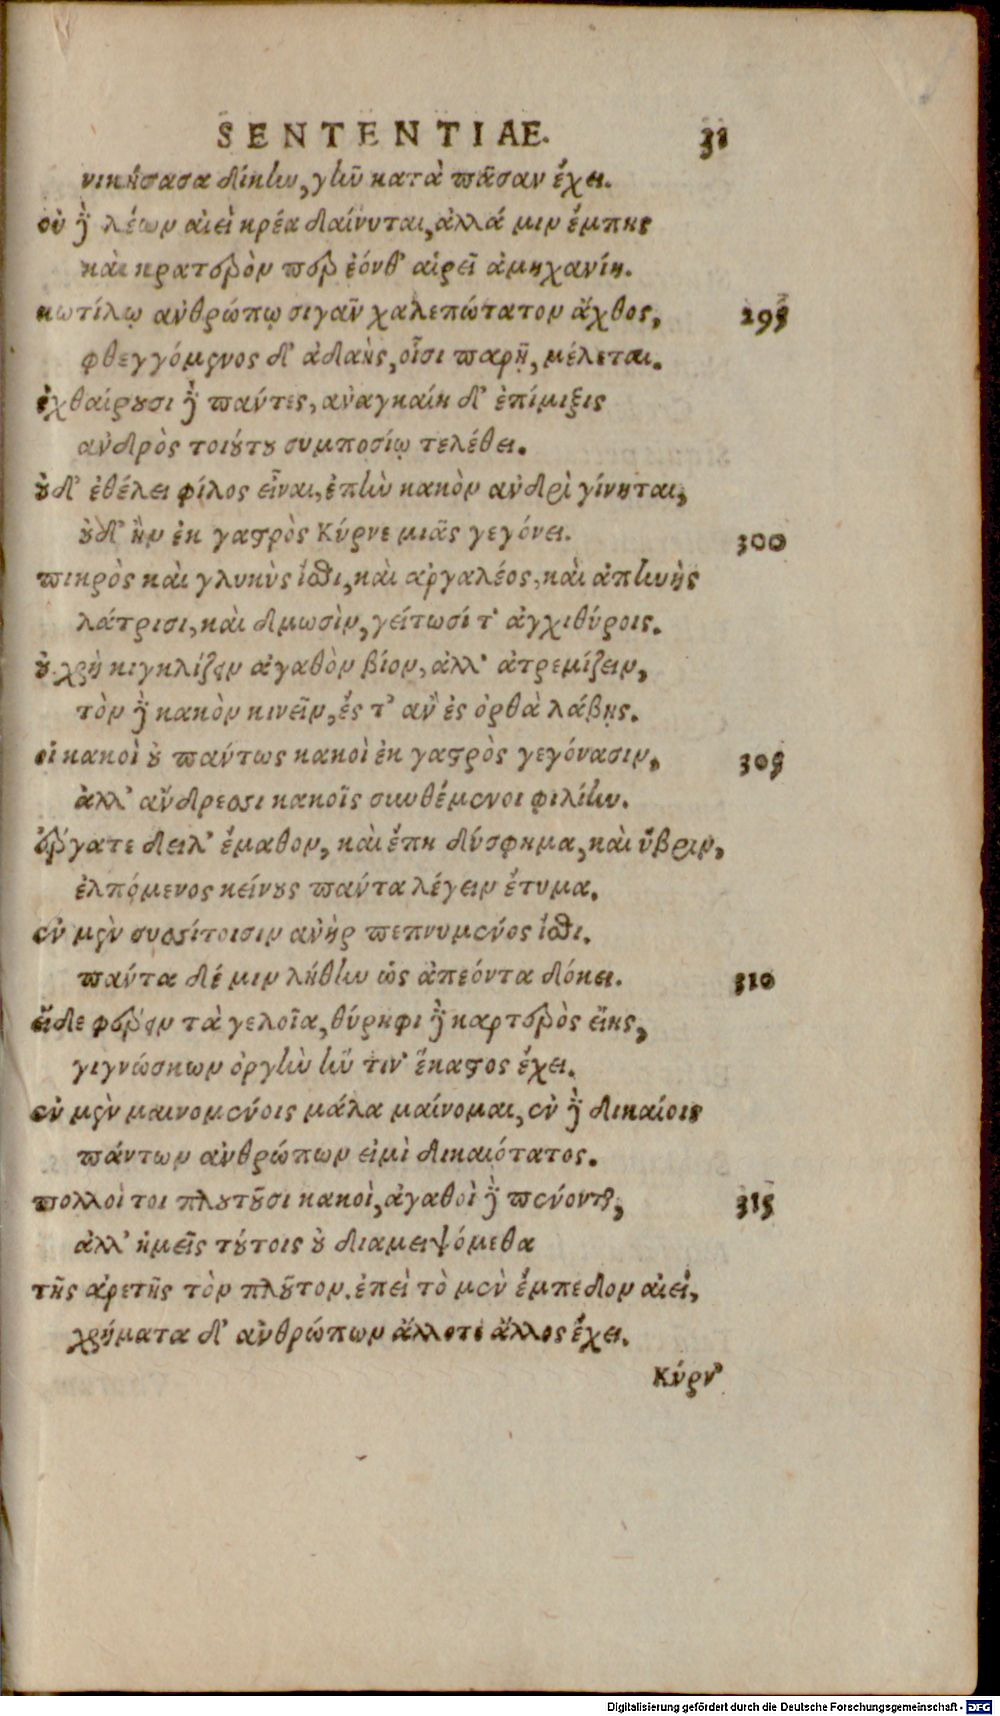 SENTENTIAE. 31
νικήσασα δίκην, γῆν κατὰ πᾶσαν ἔχει.
οὐ δὲ λέων αἰεὶ κρέα δαίνυται, ἀλλά μιν ἔμπης
καὶ κρατερὸν περ ἐόνθ' αἱρεῖ ἀμηχανίη.
κωτίλῳ ἀνθρώπῳ σιγᾶν χαλεπώτατον ἄχθος, 295
φθεγγόμενος δ' ἀδαὴς, οἷσι παρῇ, μέλεται.
ἐχθαίρουσι δὲ πάντες, ἀναγκαίη δ' ἐπίμιξις
ἀνδρὸς τοιούτου συμποσίῳ τελέθει.
οὐδ' ἐθέλει φίλος εἶναι, ἐπὴν κακὸν ἀνδρὶ γίνηται,
οὐδ' ἢν ἐκ γαστρὸς Κύρνε μιᾶς γεγόνει. 300
πικρὸς καὶ γλυκὺς ἴσθι, καὶ ἀργαλέος, καὶ ἀπηνὴς
λάτρισι, καὶ δμωσὶν, γείτωσί τ' ἀγχιθύροις.
οὐ χρὴ κιγκλίζειν ἀγαθὸν βίον, ἀλλ' ἀτρεμίζειν,
τὸν δὲ κακὸν κινεῖν, ἔς τ' ἂν ἐς ὀρθὰ λάβῃς.
οἱ κακοὶ οὐ πάντως κακοὶ ἐκ γαστρὸς γεγόνασιν, 305
ἀλλ' ἄνδρεσσι κακοῖς συνθέμενοι φιλίην.
ἔργατε δειλ' ἔμαθον, καὶ ἔπη δύσφημα, καὶ ὕβριν,
ἐλπόμενος κείνους πάντα λέγειν ἔτυμα.
ἐν μὲν συσσίτοισιν ἀνὴρ πεπνυμένος ἴσθι.
πάντα δέ μιν λήθην ὡς ἀπεόντα δόκει. 310
εἴδε φέρειν τὰ γελοῖα, θύρηφι δὲ καρτερὸς εἴης,
γιγνώσκων ὀργὴν ἥν τιν' ἕκαστος ἔχει.
ἐν μὲν μαινομένοις μάλα μαίνομαι, ἐν δὲ δικαίοις
πάντων ἀνθρώπων εἰμὶ δικαιότατος.
πολλοί τοι πλουτοῦσι κακοὶ, ἀγαθοὶ δὲ πένονται, 315
ἀλλ' ἡμεῖς τούτοις οὐ διαμειψόμεθα
τῆς ἀρετῆς τὸν πλοῦτον. ἐπεὶ τὸ μὲν ἔμπεδον αἰεί,
χρήματα δ' ἀνθρώπων ἄλλοτε ἄλλος ἔχει.
Κύρν'
Digitalisierung gefördert durch die Deutsche Forschungsgemeinschaft - DFG